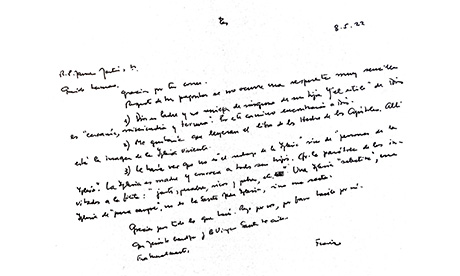 8.5.22
R.P. James Martin, sj
Querido hermano,
gracias por tu correo.
Respecto de tus preguntas se me ocurre una respuesta muy sencilla
1) Dios es Padre y no reniega de ninguno de sus hijos. Y "el estilo" de Dios
es "cercanía, misericordia y ternura". Por este camino encontrarán a Dios.
2) Me gustaría que leyeran el libro de los Hechos de los Apóstoles. Allí
está la imagen de la Iglesia viviente.
3) Le haría ver que no es "el rechazo de la Iglesia" sino de "personas de la
Iglesia". La Iglesia es madre y convoca a todos sus hijos. Cfr. la parábola de los in-
vitados a la fiesta: "justos, pecadores, ricos y pobres, etc." Una Iglesia "selectiva", una
Iglesia de "pura sangre", no es la Santa Madre Iglesia, sino una secta.
Gracias por todo lo que hacés. Rezo por vos, por favor hacelo por mí.
Que Jesús te bendiga y la Virgen Santa te cuide.
Fraternalmente,